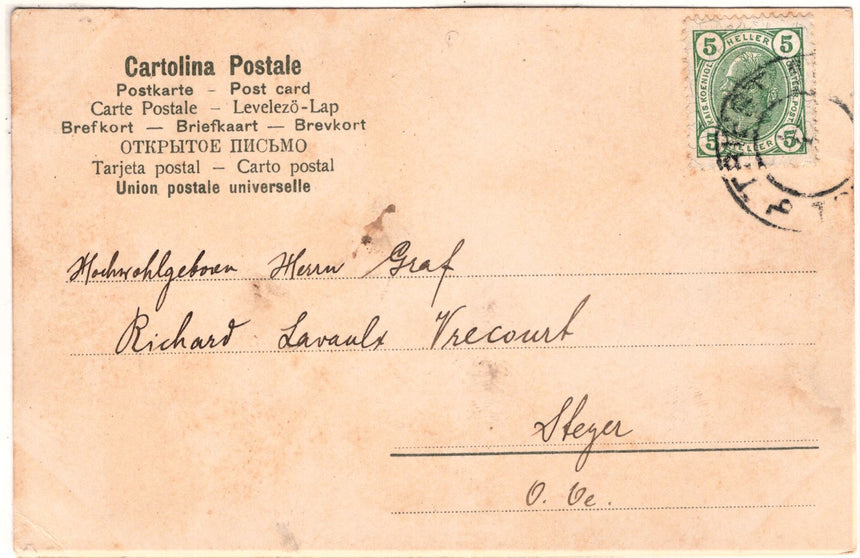 Cartolina Postale
Postkarte – Post card
Carte Postale – Levelezö-Lap
Brefkort — Briefkaart — Brevkort
ОТКРЫТОЕ ПИСЬМО
Tarjeta postal — Carto postal
Union postale universelle
5 HELLER 5
KAIS. KOENIGL. OESTERR. POST.
5 HELLER 5
Hochwohlgeboren Herrn Graf
Richard Lavaulx Vrecourt
Steyer
O. Oe.